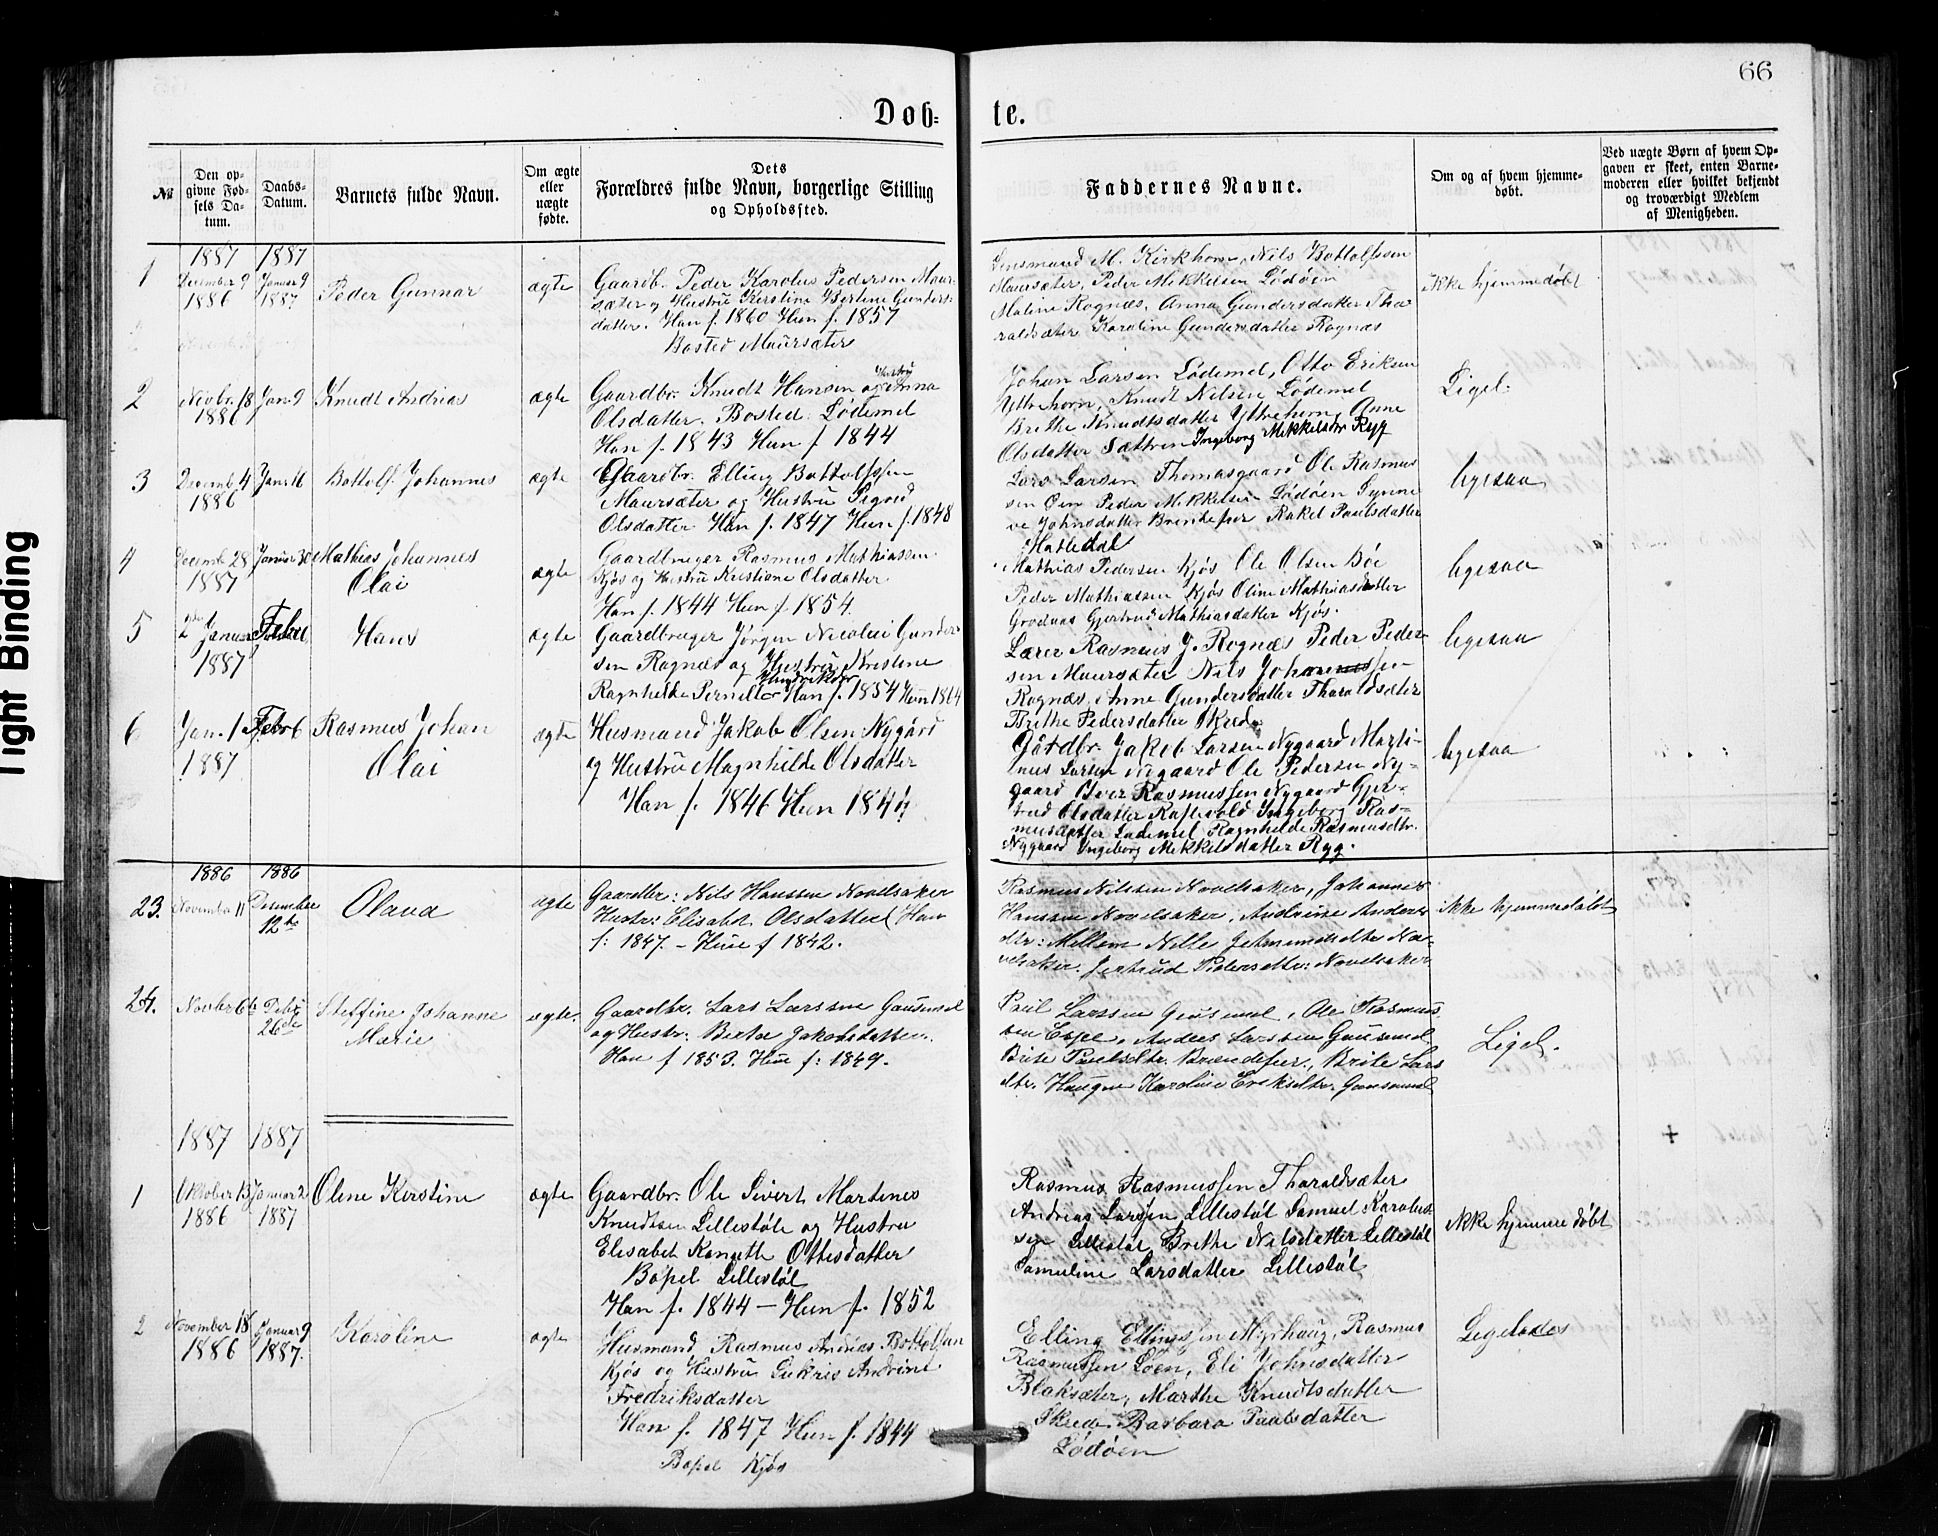 66
Døb-
te.
№
Den op-
givne Fød-
sels Da-
tum.
Daabs-
Datum.
Barnets fulde Navn.
Om ægte
eller
uægte
fødte.
Dets
Forældres fulde Navn, borgerlige Stilling
og Opholdssted.
Faddernes Navne.
Om og af hvem hjemme-
døbt.
Ved uægte Børn af hvem Op-
gaven er skeet, enten Barne-
moderen eller hvilket bekjendt
og troværdigt Medlem
af Menigheden.
1887 1887
1
December 9
1886
Januar 9
1887
Peder Gunnar
ægte
Gaardb. Peder Karolus Pedersen Maur-
sæter og Hustru Kerstine Bertine Gunders-
datter. Han f. 1860 Hun f. 1857
Bosted Maursæter
Lensmand M. Kirkhorn, Nils Bottolfssen
Maursæter, Peder Mikkelsen Lødøen
Maline Rognæs, Anna Gundersdatter Tha-
raldsæter Karoline Gundersdatter Rognæs
ikke hjemmedøbt
2
Novbr. 18
1886
Jan. 9
Knudt Andrias
ægte
Gaardbr. Knudt Hansen og Hustru Anna
Olsdatter. Bosted: Lødemel
Han f. 1843 Hun f 1844
Johan Larsen Lødemel, Otto Eriksen
Yttrehorn, Knudt Nilsen Lødemel
Brithe Knudtsdatter Yttrehorn, Anne
Olsdatter Sættren Ingeborg Mikkelsdtr Ryg
Ligel.
3
Decemb 4
1886
Jan. 16
Bottolf Johannes
ægte
Gaardbr. Elling Bottolfssen
Maursæter og Hustru Sigrid
Olsdatter Han f. 1847 Hun f. 1848
Lars Larsen Thomasgaard Ole Rasmus
sen Øen Peder Mikkelsen Lødøen Synne
ve Johnsdatter Brendefur Rakel Paulsdatter
Hatledal
ligesaa
4
Decemb 28
1887
Januar 30
Mathias Johannes
Olai
ægte
Gaardbruger Rasmus Mathiassen
Kjøs og Hustru Kristiane Olsdatter
Han f. 1844 Hun f. 1854.
Mathias Pedersen Kjøs Ole Olsen Bøe
Peder Mathiassen Kjøs Oline Mathiasdatter
Grodaas Gjertrud Mathiasdatter Kjøs.
ligesaa
5
2 Januar
1887
Febr
Hans
ægte
Gaardbruger Jørgen Nicolai Gunder-
sen Rognæs og Hustru Kristine
Ragnhilde Pernille Hendriksdtr Han f. 1854 Hun 1864
Lærer Rasmus J. Rognæs Peder Peder-
sen Maursæter Nils Johannessen
Rognæs, Anne Gundersdatter Tharaldsæter
Brithe Pedersdatter Skrede
ligesaa
6
Jan. 1
1887
Febr 6
Rasmus Johan
Olai
ægte
Husmand Jakob Olsen Nygård
og Hustru Magnhilde Olsdatter
Han f. 1846 Hun 1847
Gårdbr. Jakob Larsen Nygaard Marti-
nus Larsen Nygaard Ole Pedersen Ny-
gaard Iver Rasmussen Nygaard Gjer-
trud Olsdatter Raftevold Ingeborg Ras-
musdatter Lødemel Ragnhilde Rasmusdtr.
Nygaard Ingeborg Mekkelsdatter Ryg.
ligesaa
1886 1886
23.
November 11
December
12te
Olava
ægte
Gaardbr: Nils Hanssen Novelsaker
Hustr: Elisabet Olsdatter Han
f: 1847. - Hun f 1842.
Rasmus Nilssen Novelsaker, Johannes
Hanssen Novelsaker, Andrine Anders
dtr: Mellem Nille Jetmundsdtr No-
velsaker, Jertrud Pedersdtr: Novelsaker
ikke hjemmedøbt
24.
Novbr 6te
Debr
26de
Steffine Johanne
Marie
ægte.
Gaardbr. Lars Larssen Gausemel
og Hustr. Birte Jakobsdatter.
Han f 1853. Hun f: 1849.
Paul Larssen Gausemel, Ole Rasmus
sen Espe, Anders Larssen Gausemel
Brite Paulsdtr. Brændefur, Brite Lars
dtr. Haugen Karoline Eriksdtr. Gausemel
Ligel.
1887 1887
1
Oktober 13
1886
Januar 2
1887
Olene Kerstine
ægte
Gaardbr. Ole Sivert Martines
Knudtsen Lillestøl og Hustru
Elisabet Kanutte Ottesdatter
Bopel Lillestøl
Han f. 1844 — Hun f. 1852
Rasmus Rasmussen Tharaldsæter
Andreas Larsen Lillestøl Samuel Karolus-
sen Lillestøl, Brithe Nilsdatter Lillestøl
Samuline Larsdatter Lillestøl
ikke hjemme døbt
2
November 18
1886
Januar 9
1887.
Karoline
ægte
Husmand Rasmus Andrias Bottolfsen
Kjøs og Hustru Lukris Andrine
Fredriksdatter
Han f. 1847 Hun f. 1844
Bopel Kjøs
Elling Ellingssen Myrhaug, Rasmus
Rasmussen Loen, Eli Johnsdatter
Blaksæter, Marthe Knudtsdatter
Skrede, Barbara Paulsdatter
Lødøen
Ligeledes
Tight Binding